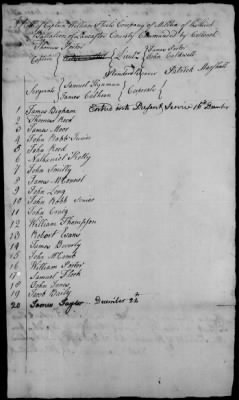 of Captain William Steels Company of Militia of the third
Battalion of Lancaster County Commanded by Colonel
Thomas Porter
Captain Lieuts James Porter
John Caldwell
Standard Bearer Patrick Marshall
Serjeants Samuel Hynman
James Calhoon Corporals
1 James Bigham Entred into Desart Service 16th December
2 Thomas Reed
3 James Moor
4 John Robb Junior
5 John Reed
6 Nathaniel Kelly
7 John Smilly
8 James McConnel
9 John Long
10 John Robb Senior
11 John Craig
12 William Thompson
13 Robert Evans
14 James Beverly
15 John McComb
16 William Porter
17 Samuel Fleek
18 John Jones
19 Jacob Baily
20 James Taylor December 24th